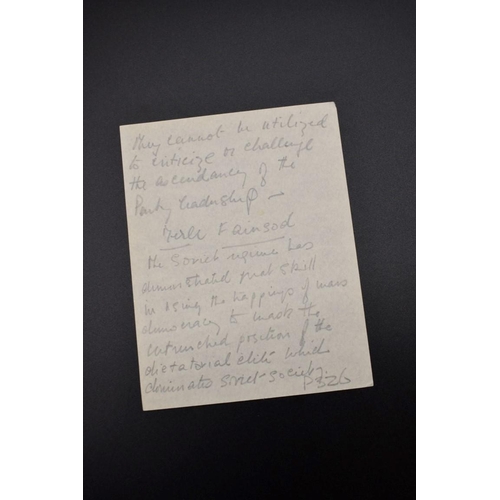 they cannot be utilized
to criticize or challenge
the ascendancy of the
Party leadership —
Merle Fainsod
The Soviet regime has
demonstrated great skill
in using the trappings of mass
democracy to mask the
entrenched position of the
dictatorial elite which
dominates Soviet society.
p 326